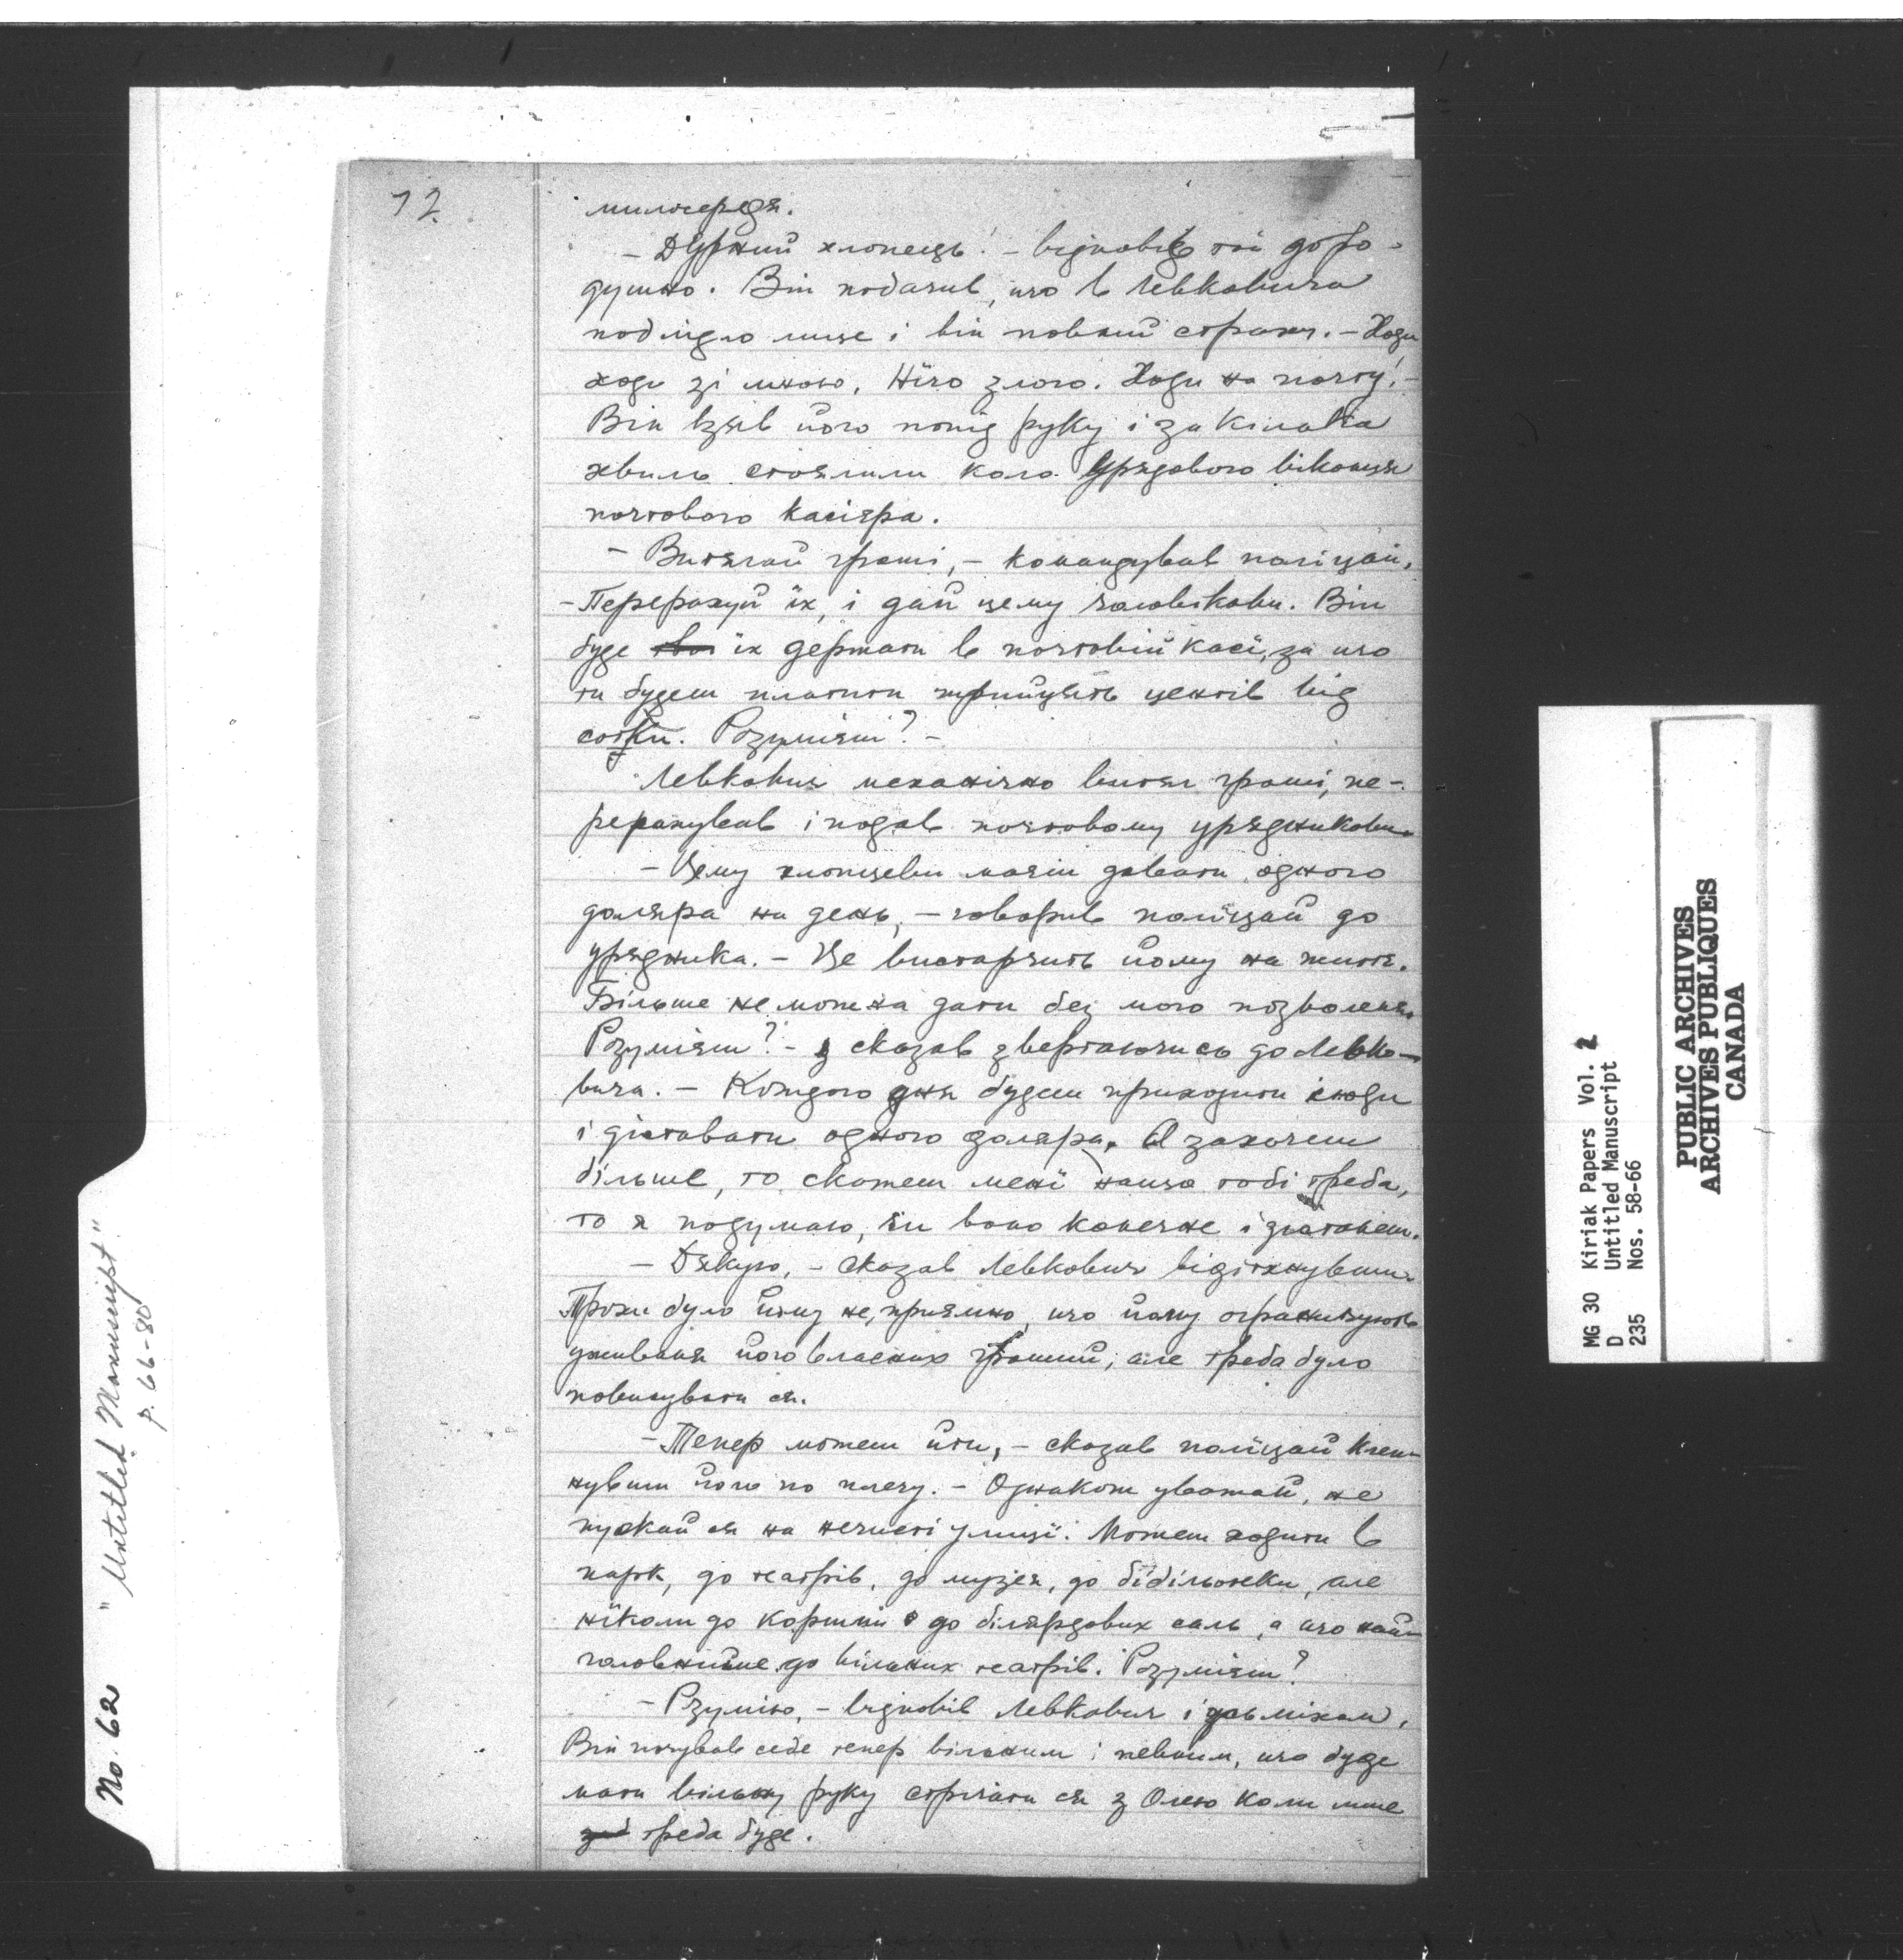 72.
милосердя.
– Дурний хлопець! – відповів той добро-
душно. Він побачив, що в Левковича
поблідло лице і він повний страху. – Ходи
ходи зі мною, Нїчо злого. Ходи на почту! –
Він взяв його попід руку і за кілька
хвиль стояли коло урядового віконця
почтового касієра.
– Витягай гроші, – командував поліцай.
– Перерахуй їх, і дай цему чоловікови. Він
буде їх держати в почтовій касї, за що
ти будеш платити центів від
сотки. Розумієш? –
Левкович механічно витяг гроші, пе-
рерахував і подав почтовому урядникови.
– Цему хлопцеви маєш давати одного
доляра на день, – говорив поліцай до
урядника. – Це вистарчить йому на житє.
Більше не можна дати без мого позволеня.
Розумієш? – сказав звертаючись до Левко-
вича. – Кождого дня будеш приходити сюди
і діставати одного доляра. А захочеш
більше, то скажеш менї нащо тобі треба,
то я подумаю, чи воно конечне і дістанеш.
– Дякую, – сказав Левкович відітхнувши.
Трохи було йому не приємно, що йому ограничують
уживаня його власних грошей, але треба було
повинувати ся.
– Тепер можеш йти, – сказав поліцай клеп-
нувши його по плечу. – Однакож уважай, не
пускай ся на нечисті улицї. Можеш ходити в
парк, до театрів, до музея, до бібільотеки, але
нїколи до коршми до білярдових саль, а що най-
головнійше до вільних театрів. Розумієш?
– Рзумію, – відповів Левкович і усьміхом.
Він почував себе тепер вільним і певним, що буде
мати вільну руку стрічати ся з Олею коли лише
треба буде.
No. 62 "Untitled Manuscript"
p. 66-80
MG 30 Kiriak Papers Vol. 2
D Untitled Manuscript
235 Nos. 58-66
PUBLIC ARCHIVES
ARCHIVES PUBLIQUES
CANADA